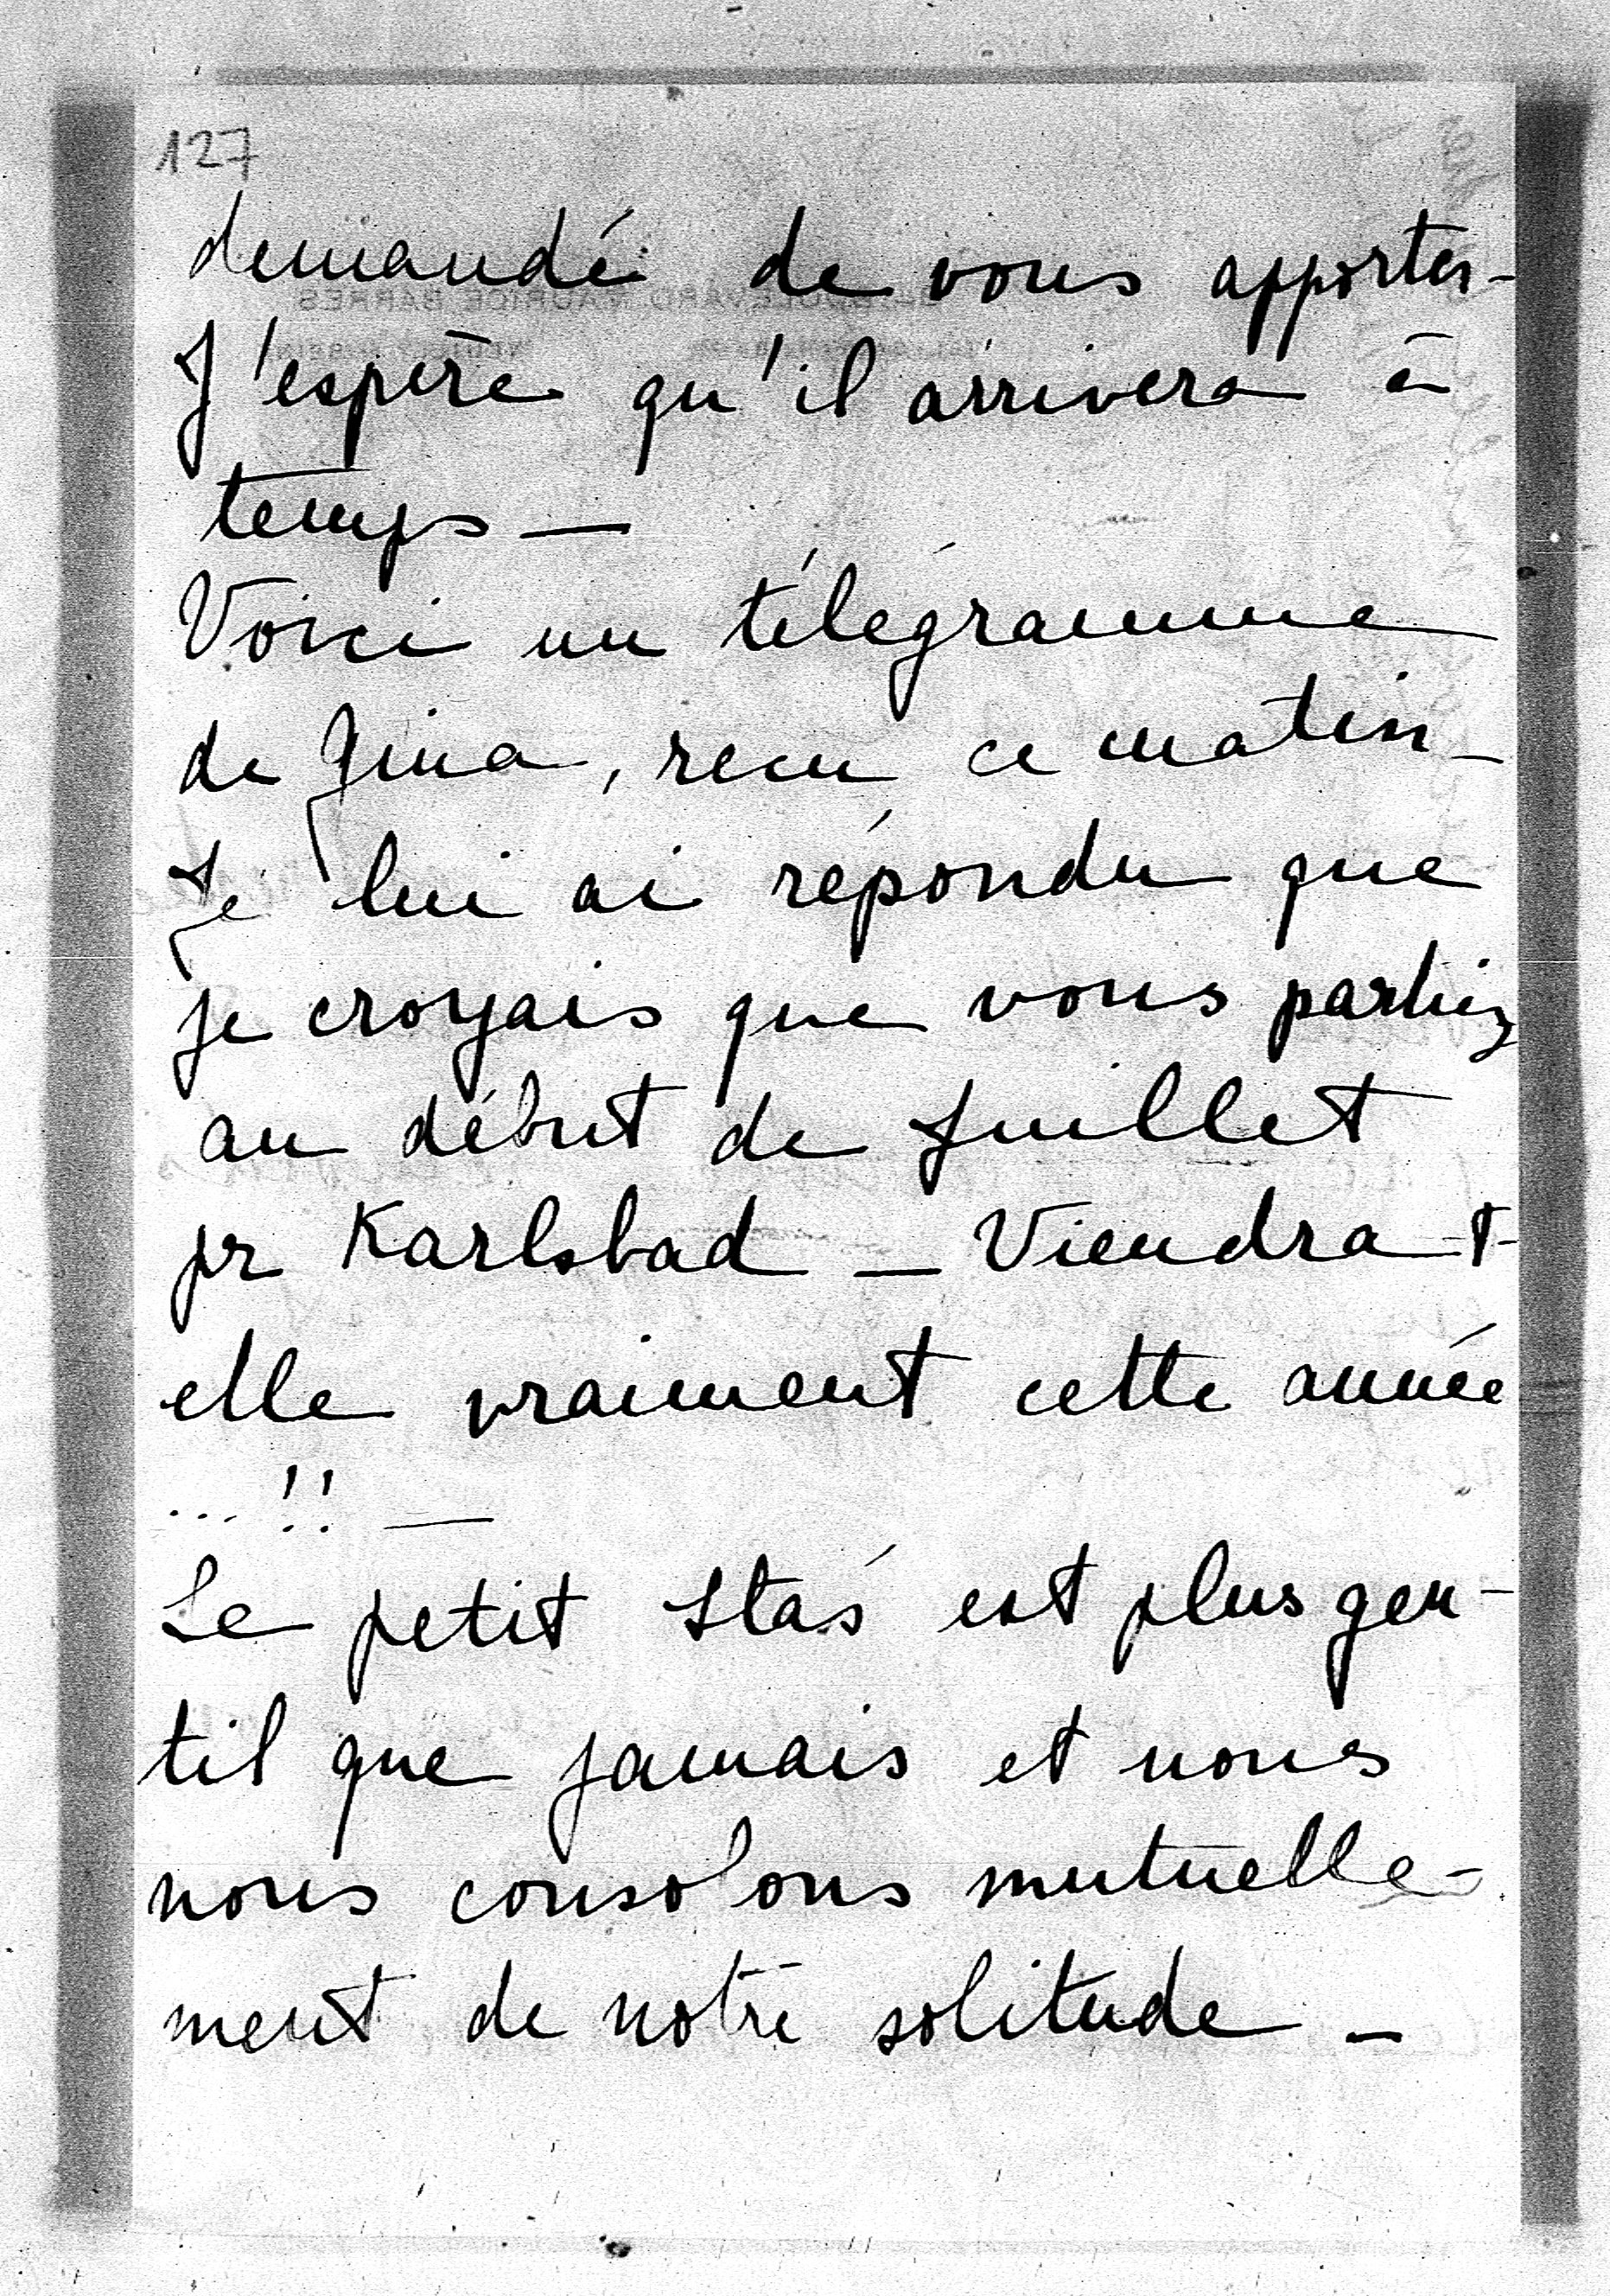 127
demandé de vous apporter -
J'espère qu'il arrivera à
temps —
Voici un télégramme
de Gina, recu ce matin -
Je lui ai répondu que
je croyais que vous partiez
au début de Juillet
pr Karlsbad — Viendra-t-
elle vraiment cette année
... !! —
Le petit Staś est plus gen-
til que jamais et nous
nous consolons mutuelle-
ment de notre solitude -